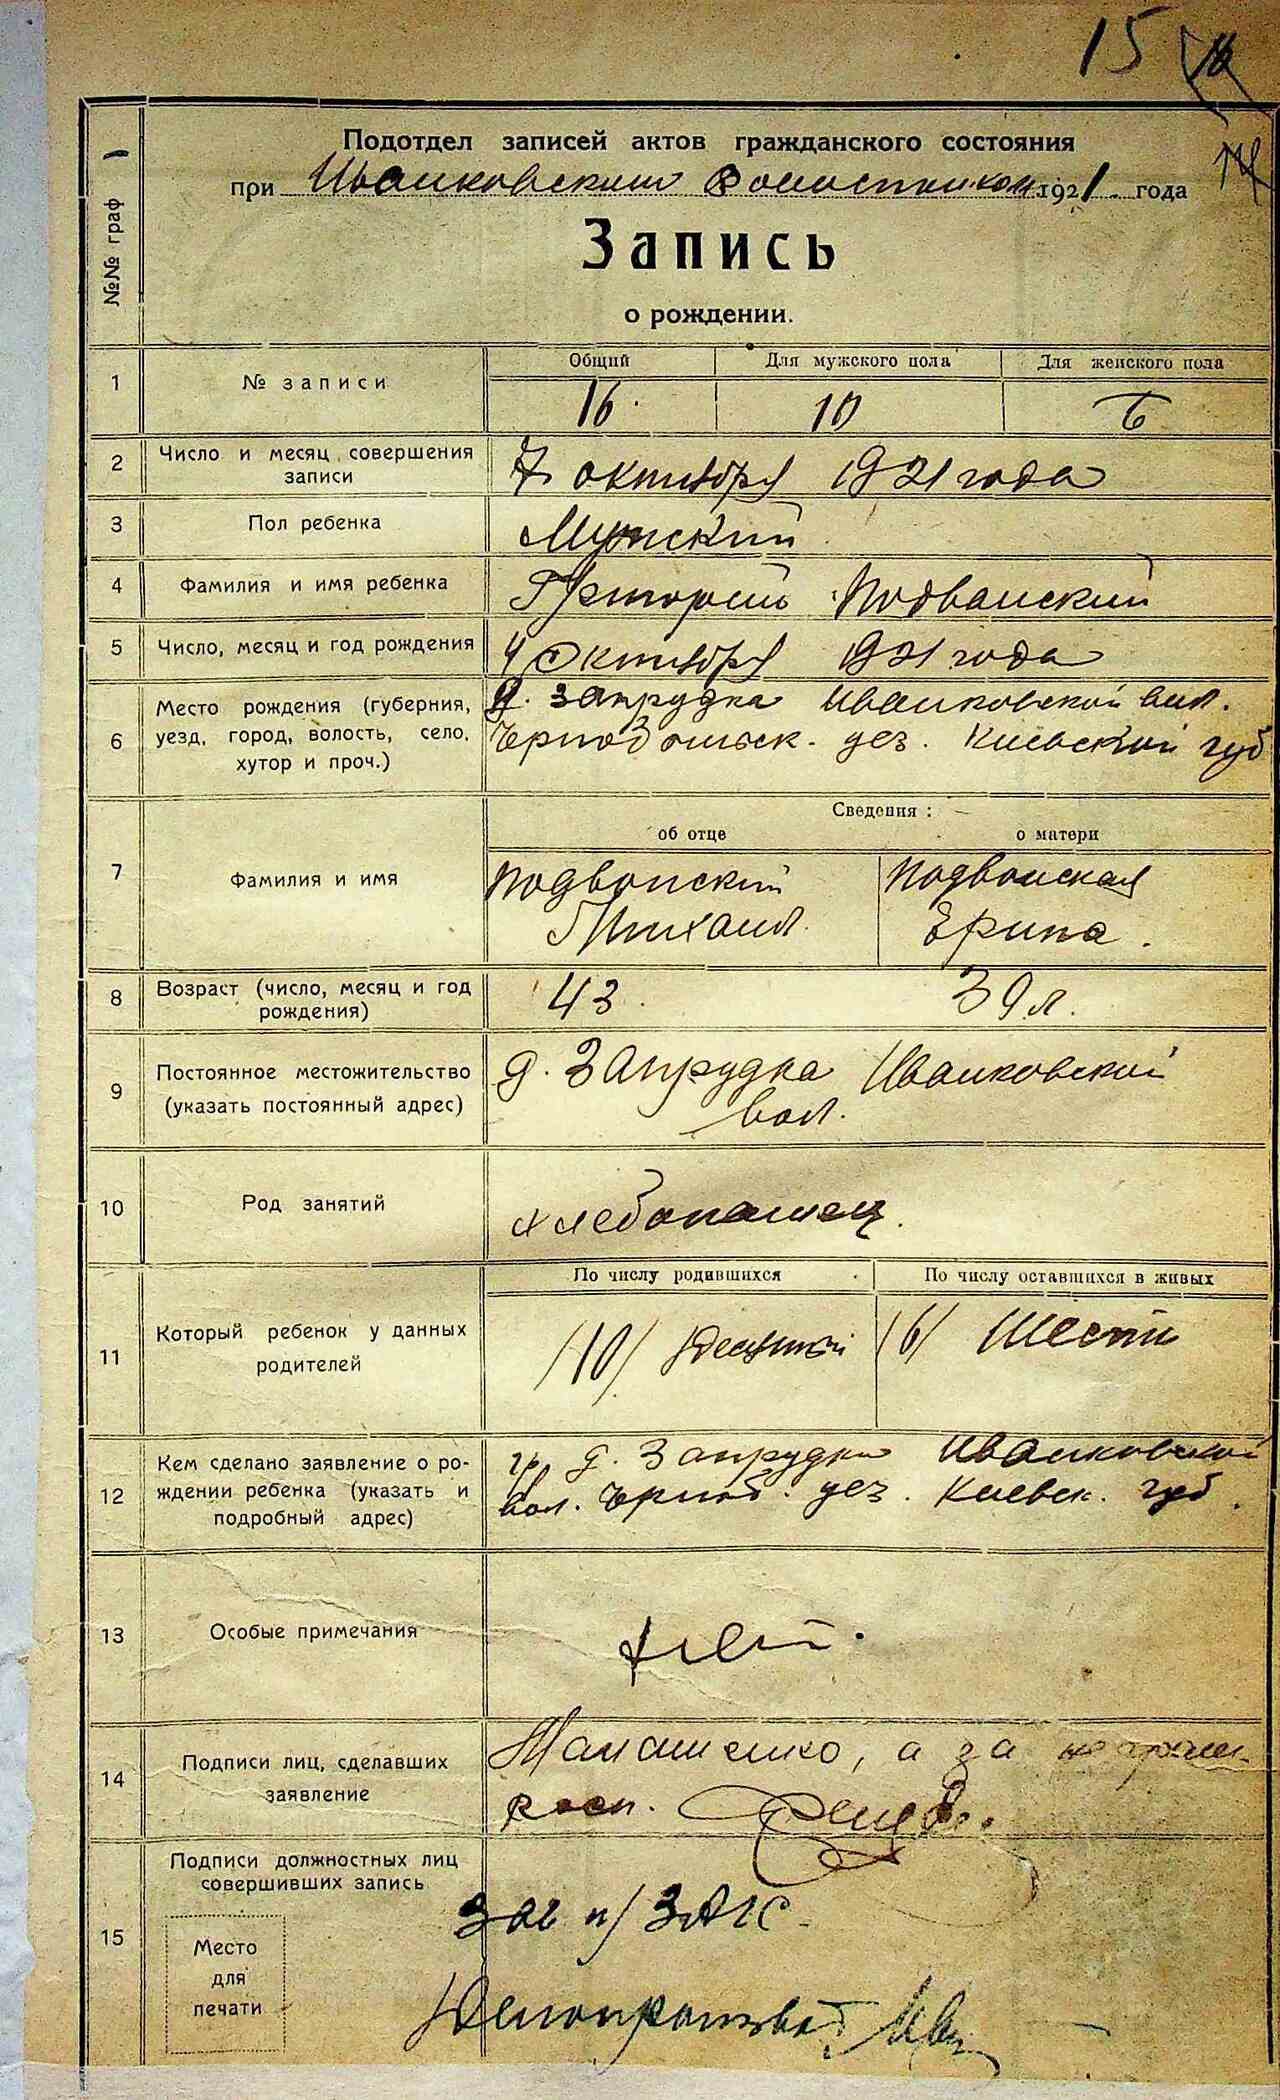 15 16
14
Подотдел записей актов гражданского состояния
при Иванковским Волостном 1921. года
Запись
о рождении.
№№ граф
Общий Для мужского пола Для женского пола
1 № записи 16. 10 6
2 Число и месяц совершения
записи
7 октября 1921 года
3 Пол ребенка Мужский
4 Фамилия и имя ребенка Григорий Подвойский
5 Число, месяц и год рождения 4 Октября 1921 года
6 Место рождения (губерния,
уезд, город, волость, село,
хутор и проч.)
д. Запрудка Иванковской вол.
Чернобыльск. уез. Киевской губ
Сведения :
об отце о матери
7 Фамилия и имя
Подвойский Подвойская
Михаил. Ерина.
8 Возраст (число, месяц и год
рождения)
43 39 л.
9 Постоянное местожительство
(указать постоянный адрес)
д. Запрудка Иванковской
вол.
10 Род занятий хлебопашец.
По числу родившихся По числу оставшихся в живых
11 Который ребенок у данных
родителей
/10/ десятый /6/ Шести
12 Кем сделано заявление о ро-
ждении ребенка (указать и
подробный адрес)
гр. д. Запрудки Иванковской
вол. Черноб. уез. Киевск. губ.
13 Особые примечания нет.
14 Подписи лиц, сделавших
заявление
а за неграм.
росп.
15 Подписи должностных лиц
совершивших запись
Место
для
печати
Зав п/ЗАГС
Делопроизвод